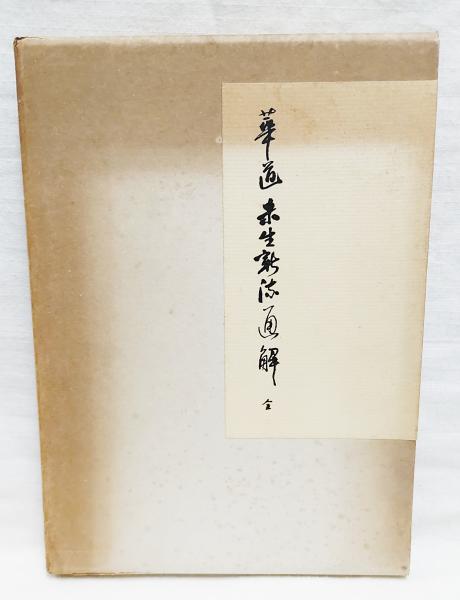 華道 未生新流通解 全